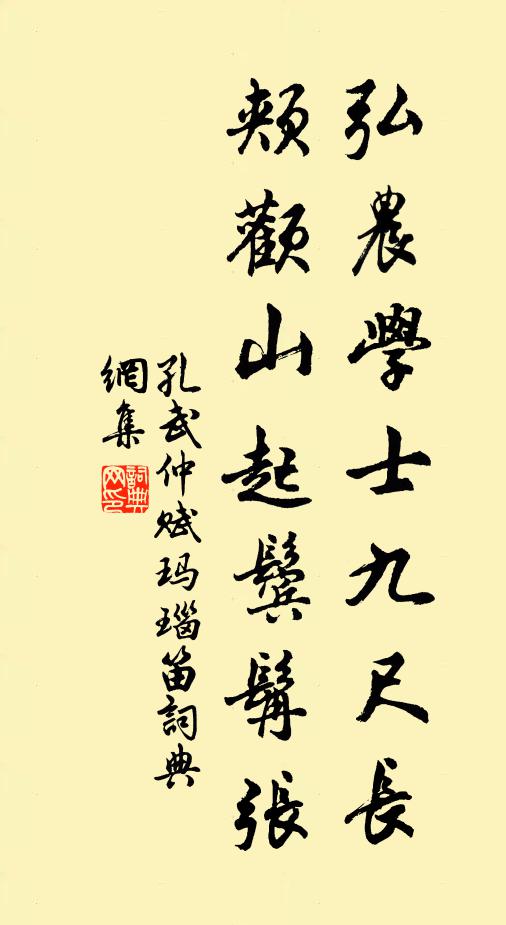 弘農學士九尺長
頰顴山起鬢髯張
孔武仲賦玛瑙笛詞典
網集
詞典
網印